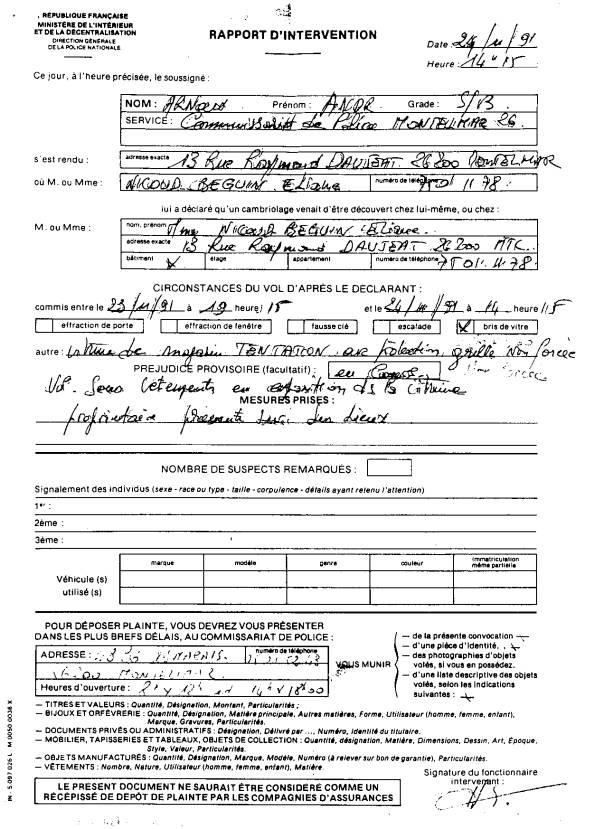 RÉPUBLIQUE FRANÇAISE
MINISTÈRE DE L'INTÉRIEUR
ET DE LA DÉCENTRALISATION
DIRECTION GÉNÉRALE
DE LA POLICE NATIONALE
RAPPORT D'INTERVENTION
Date : 24/11/91
Heure : 14 H 15
Ce jour, à l'heure précisée, le soussigné :
NOM : Prénom : Grade : S/B
SERVICE : Commissariat de Police MONTELIMAR 26
s'est rendu : adresse exacte 13 Rue Raymond DAUJEAT 26200 MONTELIMAR
où M. ou Mme : NICOUD BEGUIN Eliane numéro de téléphone 11 78
lui a déclaré qu'un cambriolage venait d'être découvert chez lui-même, ou chez :
M. ou Mme : nom, prénom Mme NICOUD BEGUIN Eliane
adresse exacte 13 Rue Raymond DAUJEAT 26200 MTL
bâtiment étage appartement numéro de téléphone 75 01 11 78
CIRCONSTANCES DU VOL D'APRÈS LE DECLARANT :
commis entre le 23/11/91 à 19 heure 15 et le 24/11/91 à 14 heure 15
effraction de porte effraction de fenêtre fausse clé escalade X bris de vitre
autre : vitrine de magasin TENTATION protection grille non forcée
PREJUDICE PROVISOIRE (facultatif) : en
Vol vêtements en exposition ds la vitrine
MESURES PRISES :
propriétaire présente sur les lieux
NOMBRE DE SUSPECTS REMARQUÉS :
Signalement des individus (sexe - race ou type - taille - corpulence - détails ayant retenu l'attention)
1er :
2ème :
3ème :
marque modèle genre couleur immatriculation même partielle
Véhicule (s)
utilisé (s)
POUR DÉPOSER PLAINTE, VOUS DEVREZ VOUS PRÉSENTER
DANS LES PLUS BREFS DÉLAIS, AU COMMISSARIAT DE POLICE :
ADRESSE : numéro de téléphone
26200 MONTELIMAR
Heures d'ouverture :
VOUS MUNIR
— de la présente convocation
— d'une pièce d'identité.
— des photographies d'objets
volés, si vous en possédez.
— d'une liste descriptive des objets
volés, selon les indications
suivantes :
— TITRES ET VALEURS : Quantité, Désignation, Montant, Particularités ;
— BIJOUX ET ORFÈVRERIE : Quantité, Désignation, Matière principale, Autres matières, Forme, Utilisateur (homme, femme, enfant),
Marque, Gravures, Particularités.
— DOCUMENTS PRIVÉS OU ADMINISTRATIFS : Désignation, Délivré par ..., Numéro, Identité du titulaire.
— MOBILIER, TAPISSERIES ET TABLEAUX, OBJETS DE COLLECTION : Quantité, désignation, Matière, Dimensions, Dessin, Art, Époque,
Style, Valeur, Particularités.
— OBJETS MANUFACTURÉS : Quantité, Désignation, Marque, Modèle, Numéro (à relever sur bon de garantie), Particularités.
— VÊTEMENTS : Nombre, Nature, Utilisateur (homme, femme, enfant), Matière.
Signature du fonctionnaire
intervenant :
LE PRESENT DOCUMENT NE SAURAIT ÊTRE CONSIDÉRÉ COMME UN
RÉCÉPISSÉ DE DÉPOT DE PLAINTE PAR LES COMPAGNIES D'ASSURANCES